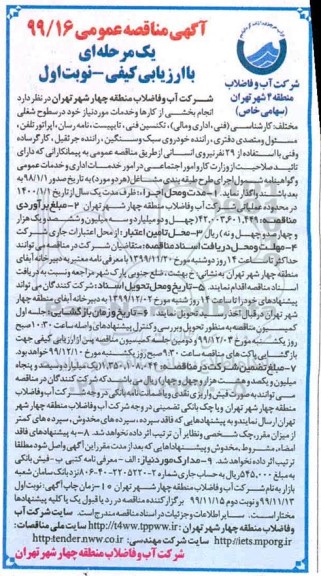 آگهی مناقصه عمومی ۹۹/۱۶
یک مرحله ای
با ارزیابی کیفی - نوبت اول
شرکت آب و فاضلاب
منطقه ۴ شهر تهران
(سهامی خاص)
شرکت آب و فاضلاب منطقه چهار شهر تهران در نظر دارد
انجام بخشی از کارها و خدمات مورد نیاز خود در سطوح شغلی
مختلف: کارشناسی (فنی، اداری ومالی)، تکنسین فنی، تایپیست، نامه رسان، اپراتور تلفن،
مسئول ومتصدی دفتری، راننده خودروی سبک وسنگین، راننده جرثقیل، کارگر ساده
وفنی با استفاده از ۲۹ نفر نیروی انسانی از طریق مناقصه عمومی به پیمانکارانی که دارای
تائید صلاحیت از وزارت کار و امور اجتماعی در امور خدمات اداری و خدمات عمومی
و گواهینامه شمول اجرای طرح طبقه بندی مشاغل (هر دو مورد) به تاریخ صدور ۹۸/۱/۱ به
بعد بوده، واگذار نماید. ۱-مدت ومحل اجرا: ظرف مدت یک سال از تاریخ ۱۴۰۰/۱/۱
در محدوده شرکت آب و فاضلاب منطقه چهار شهر تهران. ۲-مبلغ برآوردی
مناقصه: ۴۲،۰۰۳،۶۰۱،۴۴۹ (چهل و دو میلیارد و سه میلیون و ششصد و یک هزار
و چهارصد و چهل و نه) ریال ۳-محل تامین اعتبار: از محل اعتبارات جاری شرکت
۴-مهلت ومحل دریافت اسناد مناقصه: متقاضیان شرکت در مناقصه می توانند
حداکثر تا ساعت ۱۴ روز دوشنبه مورخ ۱۳۹۹/۱۱/۲۰ با معرفی نامه معتبر به دبیرخانه آبفای
منطقه چهار شهر تهران به نشانی: خ بهشت، ضلع جنوبی پارک شهر مراجعه ونسبت به دریافت
اسناد مناقصه اقدام نمایند. ۵-تاریخ ومحل تحویل اسناد: شرکت کنندگان می تواند
پیشنهادهای خود را تا ساعت ۱۴ روز شنبه مورخ ۹۹/۱۲/۰۲ به دبیرخانه آبفای منطقه چهار
شهر تهران در قبال اخذ رسید تحویل نمایند. ۶-تاریخ وزمان بازگشایی: جلسه اول
کمیسیون مناقصه به منظور تحویل وبررسی و کنترل پیشنهادهای واصله ساعت ۱۰:۳۰ صبح
روز یکشنبه مورخ ۹۹/۱۲/۰۳ و دومین جلسه کمیسیون مناقصه پس از ارزیابی کیفی جهت
بازگشایی پاکت های مناقصه ساعت ۹:۳۰ صبح روز یکشنبه مورخ ۹۹/۱۲/۱۰ خواهد بود.
۷-مبلغ تضمین شرکت در مناقصه: ۱،۳۵۰،۱۰۸،۰۴۴ (یک میلیارد و سیصد و پنجاه
میلیون و یکصد و هشت هزار و چهل و چهار) ریال می باشد که شرکت کنندگان در مناقصه
می توانند به صورت فیش واریزی نقدی ویا ضمانت نامه بانکی در وجه شرکت آب و فاضلاب
منطقه چهار شهر تهران ویا چک بانکی تضمینی در وجه شرکت آب و فاضلاب منطقه چهار شهر
تهران ارسال نمایند و به پیشنهادهایی که فاقد سپرده، سپرده های مخدوش، سپرده های کمتر
از میزان مقرر، چک شخصی ونظایر آن ترتیب اثر داده نخواهد شد. ۸-به پیشنهادهای فاقد
امضاء، مشروط، مخدوش وپیشنهادهایی که بعد از مدت مقرر این آگهی واصل شود مطلقا
ترتیب اثر داده نخواهد شد. ۹-مدارک مورد نیاز: الف-معرفی نامه کتبی ب-فیش بانکی
به مبلغ ۵۴۵،۰۰۰ ریال به حساب جاری شماره ۸۰۶-۴۰-۲۲۰۵۲۲۰-۲ نزد بانک سامان شعبه
بازار به نام شرکت آب و فاضلاب منطقه چهار شهر تهران ۱۰-زمان چاپ آگهی: نوبت اول
۹۹/۱۱/۱۳ ونوبت دوم ۹۹/۱۱/۱۵ برگزار کننده مناقصه در رد یا قبول یک یا کلیه پیشنهادها
مختار است. سایر اطلاعات وجزئیات در اسناد مناقصه مندرج است. سایت شرکت آب
وفاضلاب منطقه چهار شهر تهران: http://t4ww.tppww.ir سایت ملی مناقصات:
http://iets.mporg.ir سایت شرکت مهندسی: http:tender.nww.co.ir
شرکت آب و فاضلاب منطقه چهار شهر تهران